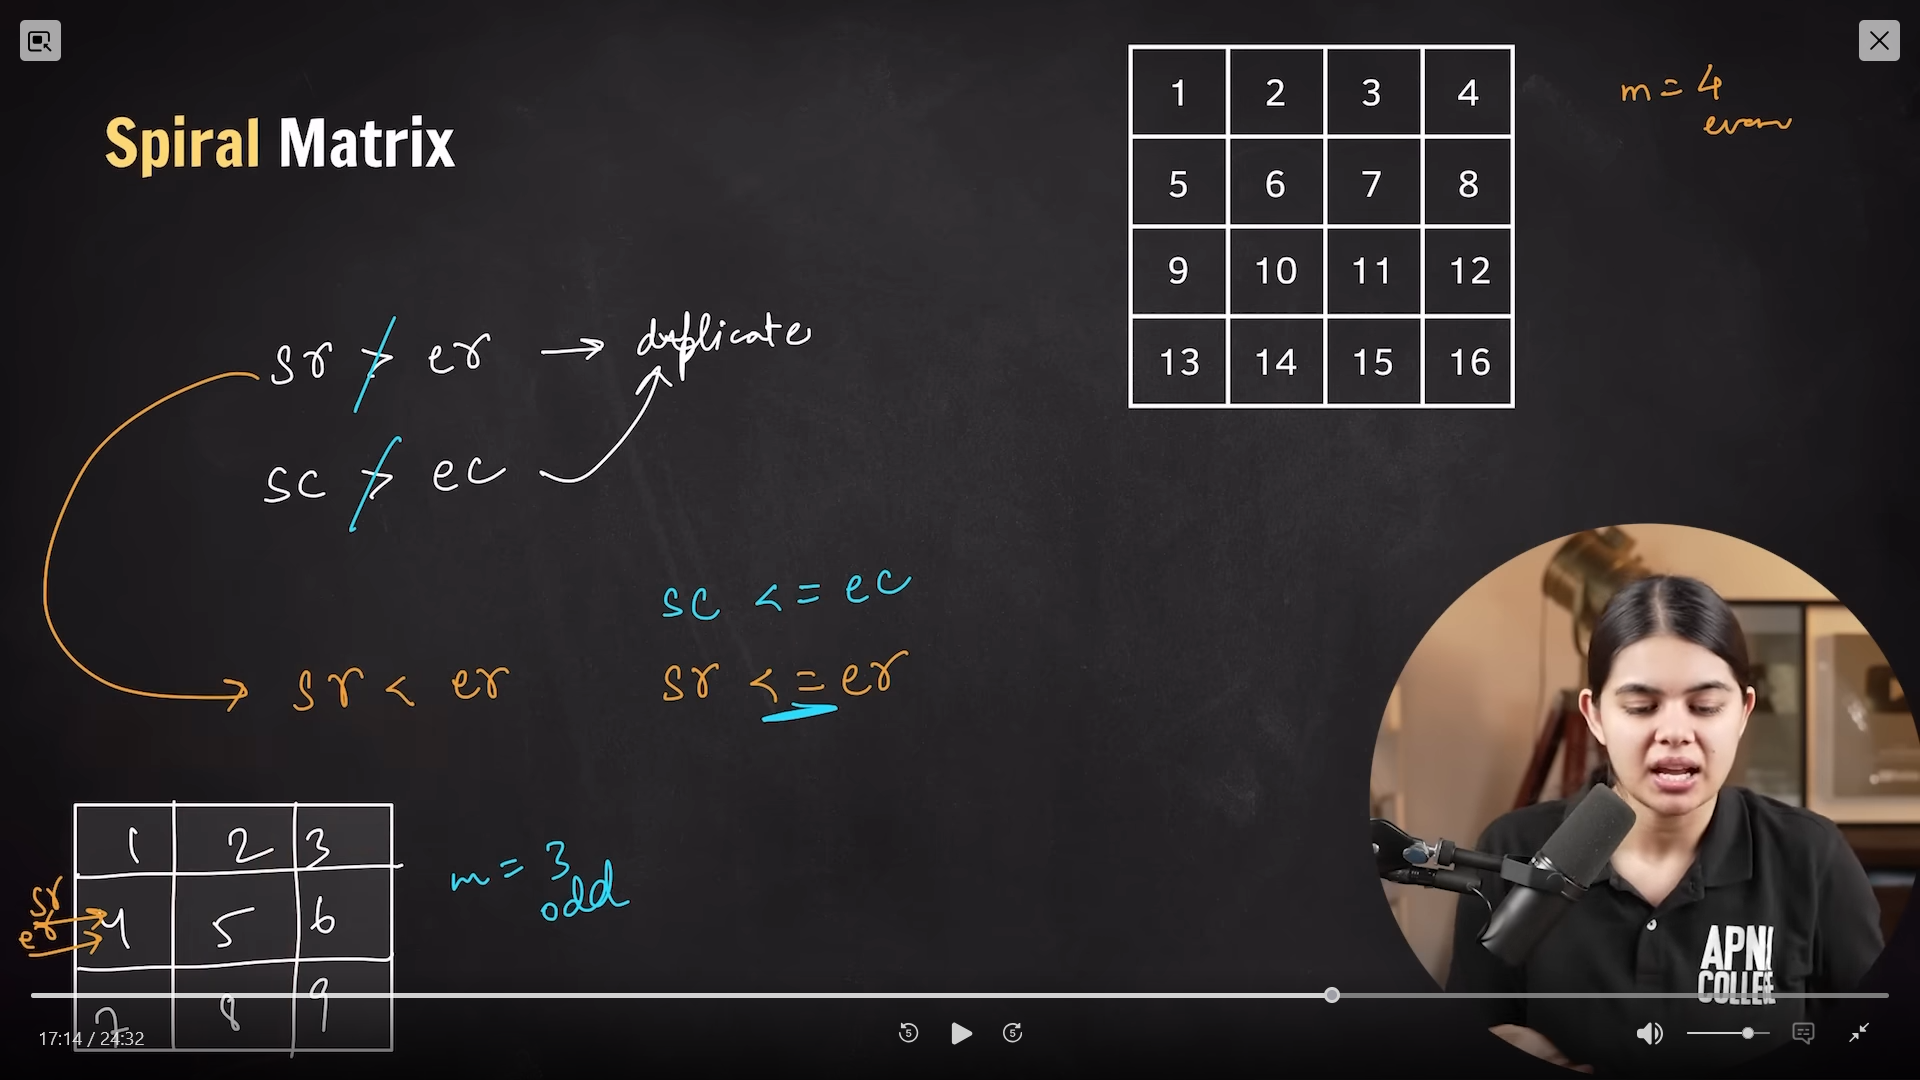 Spiral Matrix
1 2 3 4
5 6 7 8
9 10 11 12
13 14 15 16
m = 4
even
sr > er → duplicate
sc > ec
sc <= ec
sr < er
sr <= er
1 2 3
4 5 6
7 8 9
sr
er
m = 3
odd
APNI
COLLEGE
17:14 / 24:32
5
5